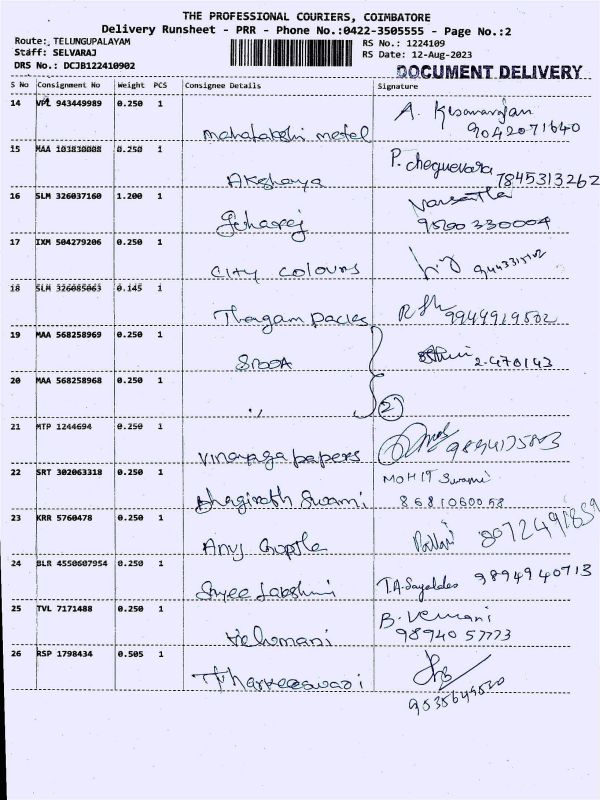 THE PROFESSIONAL COURIERS, COIMBATORE
Delivery Runsheet - PRR - Phone No.:0422-3505555 - Page No.:2
Route: TELUNGUPALAYAM RS No.: 1224109
Staff: SELVARAJ RS Date: 12-Aug-2023
DRS No.: DCJB122410902 DOCUMENT DELIVERY
S No Consignment No Weight PCS Consignee Details Signature
14 VPL 943449989 0.250 1 A.
mahalakshi metal 9042071640
15 MAA 103830008 0.250 1 P. cheguevara
Akshaya 7845313262
16 SLM 326037160 1.200 1
9500330004
17 IXM 504279206 0.250 1
City Colours
18 SLM 326085063 0.145 1
Thangam Packs 9944919502
19 MAA 568258969 0.250 1
2-470143
20 MAA 568258968 0.250 1
,, 2
21 MTP 1244694 0.250 1
vinayaga papers
22 SRT 302063318 0.250 1 MOHIT Swami
Bhagirath Swami 8681060058
23 KRR 5760478 0.250 1
Anuj Gupta
24 BLR 4550607954 0.250 1 9894940713
Shree Lakshmi
25 TVL 7171488 0.250 1 B.
Velumani 98940 57773
26 RSP 1798434 0.505 1